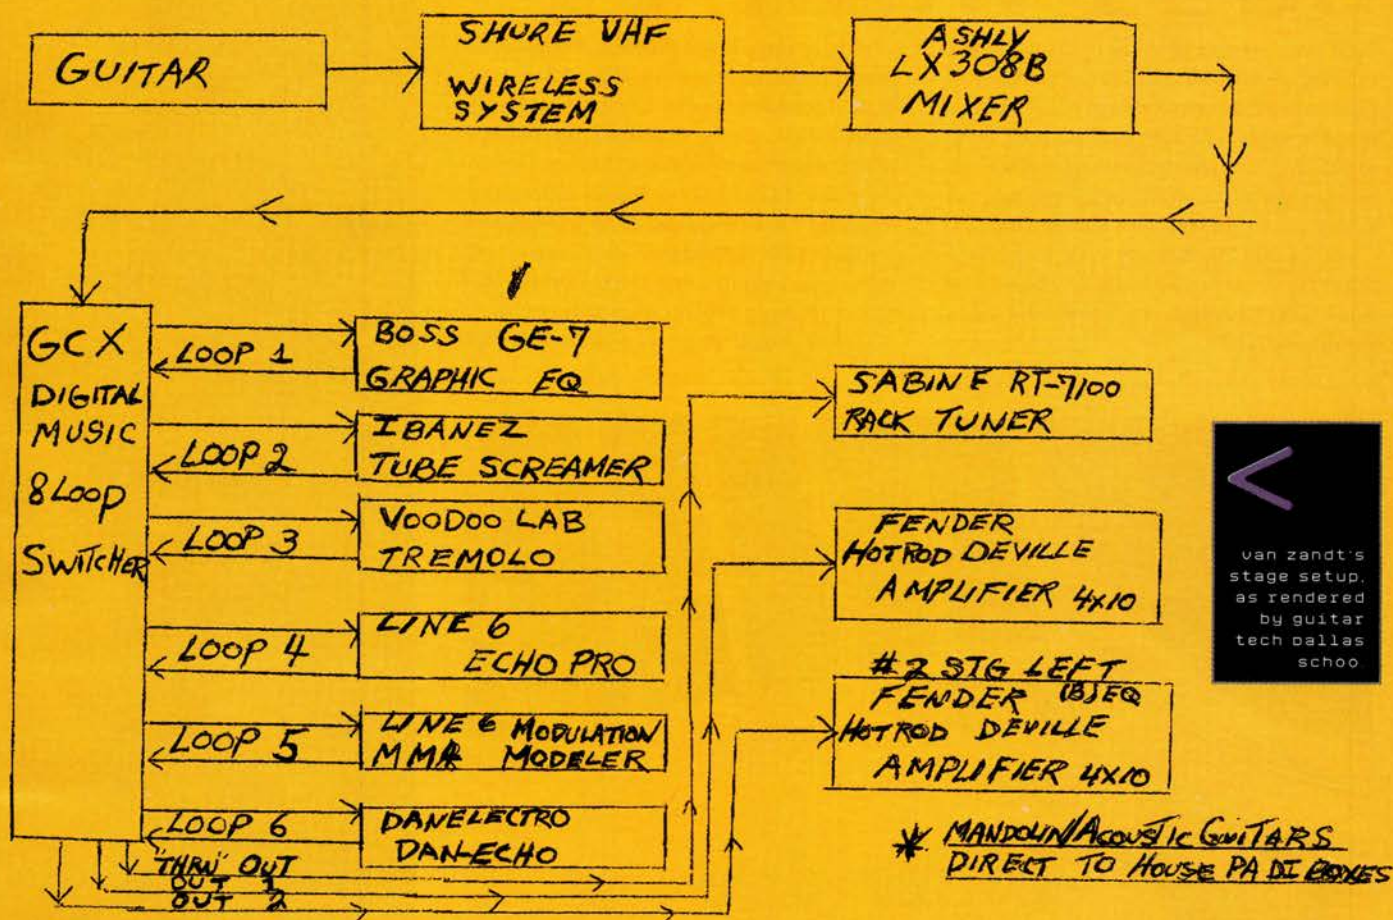 GUITAR
SHURE UHF
WIRELESS
SYSTEM
ASHLY
LX308B
MIXER
GCX
DIGITAL
MUSIC
8 LOOP
SWITCHER
LOOP 1
BOSS GE-7
GRAPHIC EQ
LOOP 2
IBANEZ
TUBE SCREAMER
LOOP 3
VOODOO LAB
TREMOLO
LOOP 4
LINE 6
ECHO PRO
LOOP 5
LINE 6 MODULATION
MM4 MODELER
LOOP 6
DANELECTRO
DAN-ECHO
"THRU" OUT
OUT 1
OUT 2
SABINE RT-7100
RACK TUNER
FENDER
HOTROD DEVILLE
AMPLIFIER 4x10
#2 STG LEFT
FENDER (B) EQ
HOTROD DEVILLE
AMPLIFIER 4x10
* MANDOLIN/ACOUSTIC GUITARS
DIRECT TO HOUSE PA DI BOXES
<
van zandt's
stage setup,
as rendered
by guitar
tech dallas
schoo